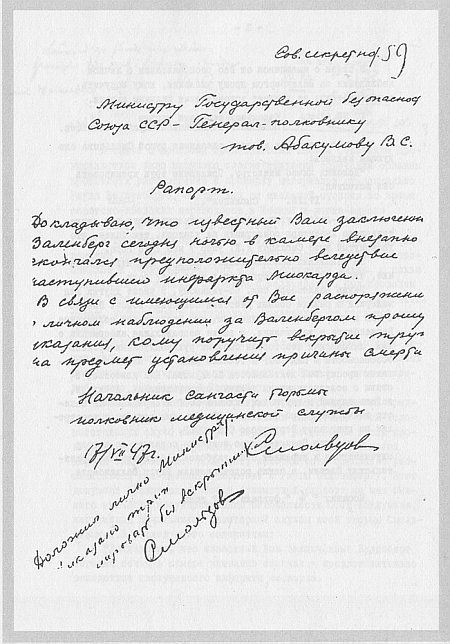 Сов. секретно.
Министру Государственной безопасно
Союза ССР - Генерал-полковнику
тов. Абакумову В.С.
Рапорт.
Докладываю, что известный Вам заключенн
Валенберг сегодня ночью в камере внезапно
скончался предположительно вследствие
наступившего инфаркта миокарда.
В связи с имеющимся от Вас распоряжени
о личном наблюдении за Валенбергом прошу
указания, кому поручить вскрытие труп
на предмет установления причины смерти
Начальник санчасти тюрьмы
полковник медицинской службы
17/VII 47г. Смольцов
Доложил лично Министру.
казано труп
кремировать без вскрытия
Смольцов